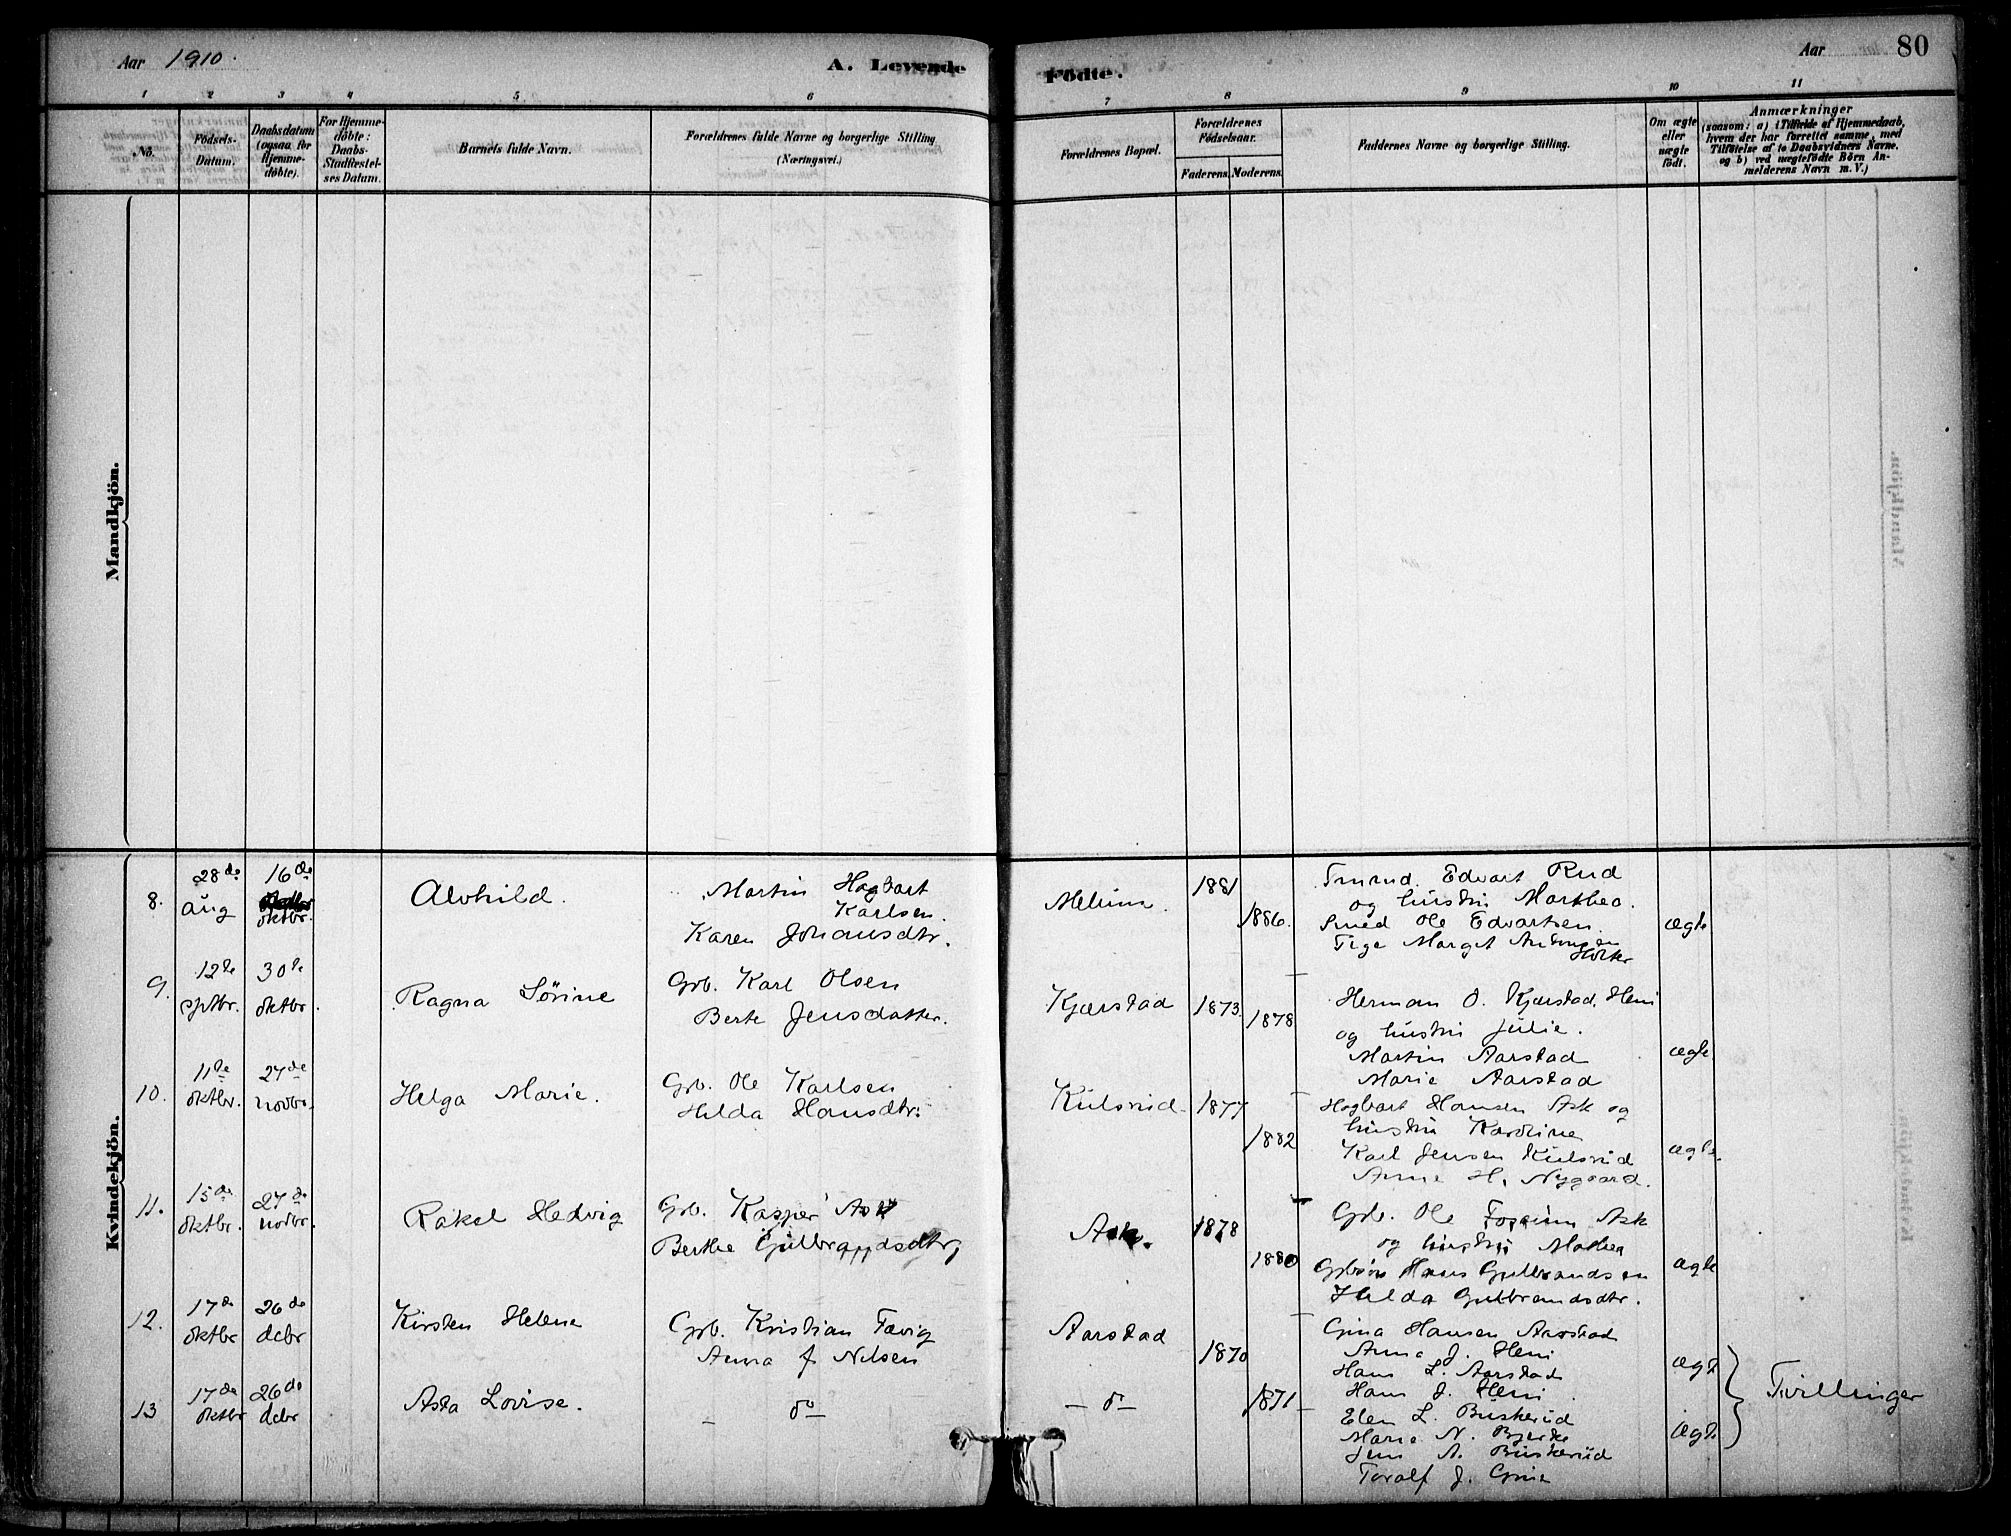 Aar 1910.
A. Levende Födte.
Aar 80
1 2 3 4 5 6 7 8 9 10 11
No.
Födsels-
Datum.
Daabsdatum
(ogsaa for
Hjemme-
döbte).
For Hjemme-
döbte:
Daabs-
Stadfæstel-
ses Datum.
Barnets fulde Navn.
Forældrenes fulde Navne og borgerlige Stilling
(Næringsvei.)
Forældrenes Bopæl.
Forældrenes
Födselsaar.
Faderens. Moderens.
Faddernes Navne og borgerlige Stilling.
Om ægte
eller
uægte
födt.
Anmærkninger
(saasom: a) i Tilfælde af Hjemmedaab,
hvem der har forrettet samme, med
Tilföielse af to Daabsvidners Navne,
og b) ved uægtefödte Börn An-
melderens Navn m. V.)
Mandkjön.
Kvindekjön.
8.
28de
aug
16de
oktbr.
Alvhild.
Martin Hagbart
Karlsen.
Karen Johansdtr.
Melum.
1881
1886.
Edvart Rud
og hustru Marthea.
Smed Ole Edvartsen.
Pige Margit
ægte
9.
12te
sptbr.
30te
oktbr.
Ragna Sörine
Grb. Karl Olsen
Berte Jensdatter.
Kjærstad
1873.
1878
Herman O. Kjærstad, Heni
og hustru Julie.
Martin Aarstad
Marie Aarstad
ægte
10.
11te
oktbr.
27de
novbr.
Helga Marie.
Grb. Ole Karlsen
Hilda Hansdtr.
Kulsrud.
1877
1882
Hagbart Hansen Ask og
hustru Karoline
Karl Jensen Kulsrud
Anne H. Nygaard.
ægte.
11.
15de
oktbr.
27de
novbr.
Rakel Hedvig
Grb. Kasper Ask
Berthe Gulbrandsdtr,
Ask.
1878
1880
Grb. Ole Ask
og hustru Mathea
Hans Gulbrandsen
Hilda Gulbrandsdtr.
ægte
12.
17de
oktbr
26de
debr
Kirsten Helene
Grb. Kristian
Anna J Nilsen
Aarstad
1870
Gina Hansen Aarstad
Anna J. Heni
Hans L. Aarstad
Hans J. Heni
ægt
13
17de
oktbr
26de
debr
Asta Lovise.
– do –
– do –
1871
Elen L. Buskerud
Marie N. Bjerke
Jens A. Buskerud
Toralf J.
ægte
Tvillinger